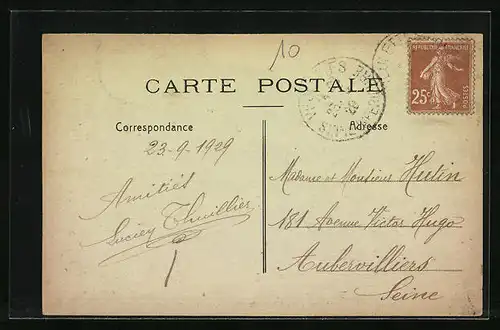 10
CARTE POSTALE
REPUBLIQUE FRANÇAISE
25c
POSTES
Correspondance
Adresse
23-9-1929
Amitiés
Lucien Thuillier
Madame et Monsieur Hutin
181 Avenue Victor Hugo
Aubervilliers
Seine